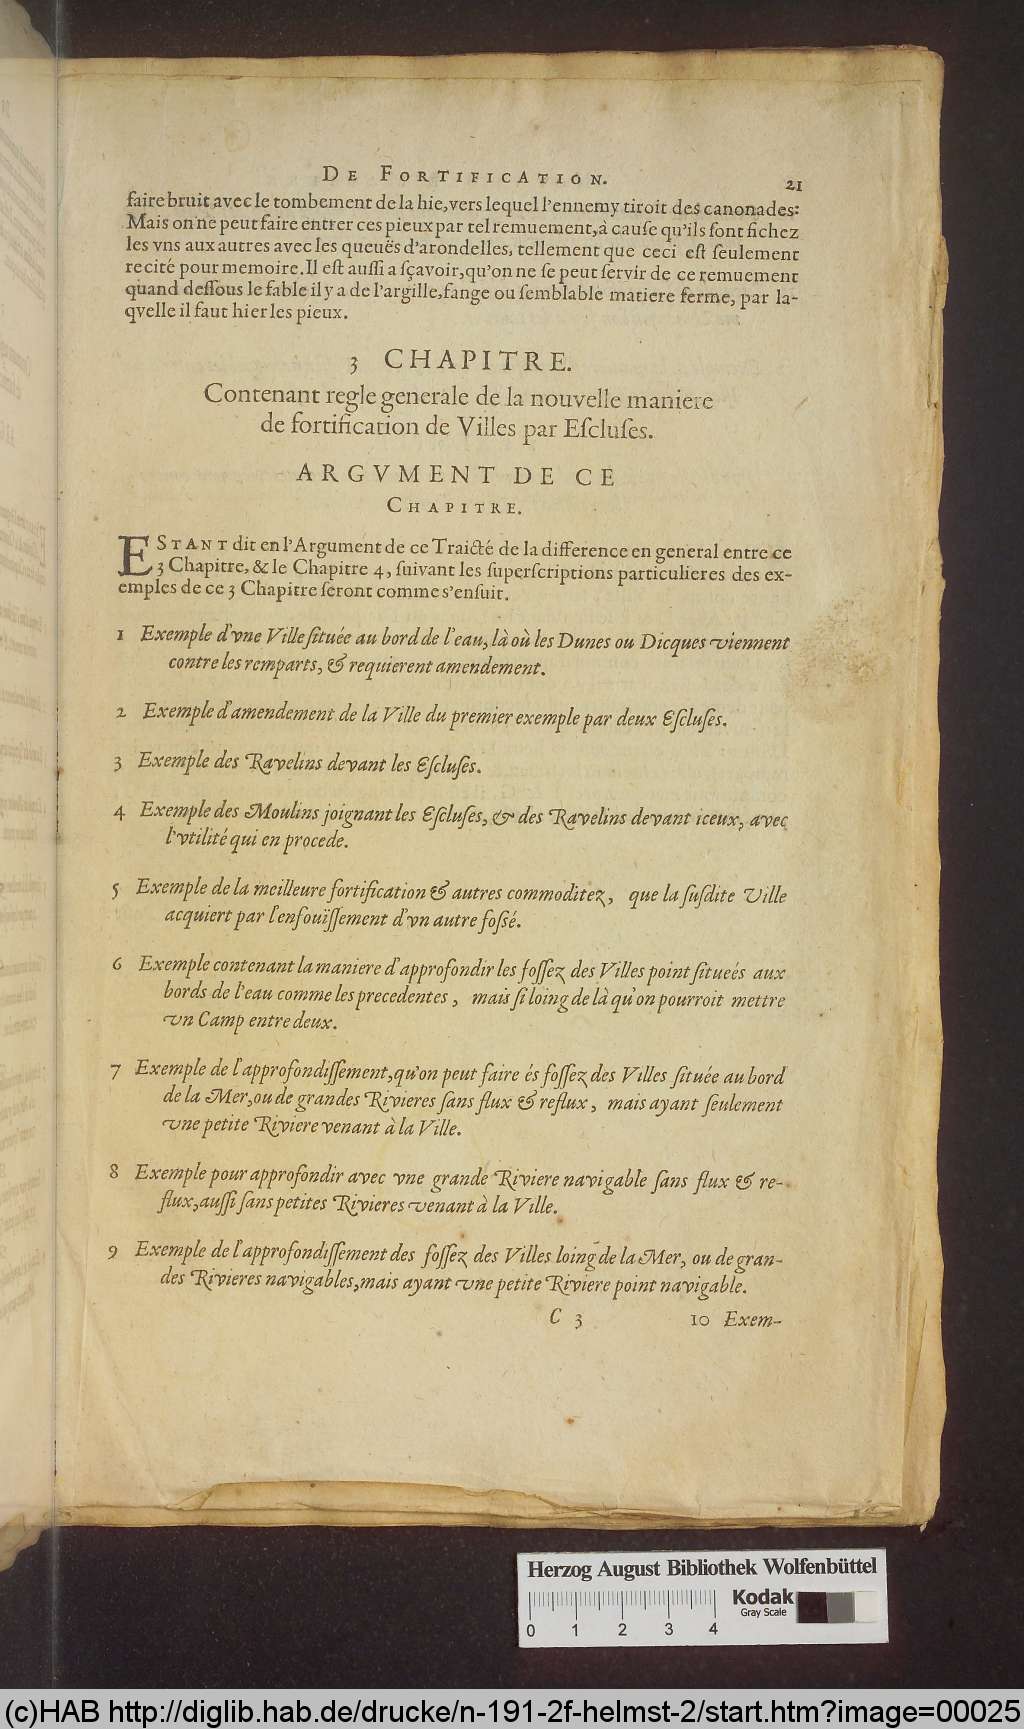 DE FORTIFICATION. 21
faire bruit avec le tombement de la hie, vers lequel l'ennemy tiroit des canonades:
Mais on ne peut faire entrer ces pieux par tel remuement, à cauſe qu'ils ſont fichez
les vns aux autres avec les queuës d'arondelles, tellement que ceci eſt ſeulement
recité pour memoire. Il eſt auſſi a ſçavoir, qu'on ne ſe peut ſervir de ce remuement
quand deſſous le ſable il y a de l'argille, fange ou ſemblable matiere ferme, par la-
qvelle il faut hier les pieux.
3 CHAPITRE.
Contenant regle generale de la nouvelle maniere
de fortification de Villes par Eſcluſes.
ARGVMENT DE CE
CHAPITRE.
ESTANT dit en l'Argument de ce Traicté de la difference en general entre ce
3 Chapitre, & le Chapitre 4, ſuivant les ſuperſcriptions particulieres des ex-
emples de ce 3 Chapitre ſeront comme s'enſuit.
1 Exemple d'vne Ville ſituée au bord de l'eau, là où les Dunes ou Dicques viennent
contre les remparts, & requierent amendement.
2 Exemple d'amendement de la Ville du premier exemple par deux Eſcluſes.
3 Exemple des Ravelins devant les Eſcluſes.
4 Exemple des Moulins joignant les Eſcluſes, & des Ravelins devant iceux, avec
l'vtilité qui en procede.
5 Exemple de la meilleure fortification & autres commoditez, que la ſuſdite Ville
acquiert par l'enfouïſſement d'vn autre foſſé.
6 Exemple contenant la maniere d'approfondir les foſſez des Villes point ſitueés aux
bords de l'eau comme les precedentes, mais ſi loing de là qu'on pourroit mettre
vn Camp entre deux.
7 Exemple de l'approfondiſſement, qu'on peut faire és foſſez des Villes ſituée au bord
de la Mer, ou de grandes Rivieres ſans flux & reflux, mais ayant ſeulement
vne petite Riviere venant à la Ville.
8 Exemple pour approfondir avec vne grande Riviere navigable ſans flux & re-
flux, auſſi ſans petites Rivieres venant à la Ville.
9 Exemple de l'approfondiſſement des foſſez des Villes loing de la Mer, ou de gran-
des Rivieres navigables, mais ayant vne petite Riviere point navigable.
C 3 10 Exem-
Herzog August Bibliothek Wolfenbüttel
Kodak
Gray Scale
0 1 2 3 4
(c)HAB http://diglib.hab.de/drucke/n-191-2f-helmst-2/start.htm?image=00025